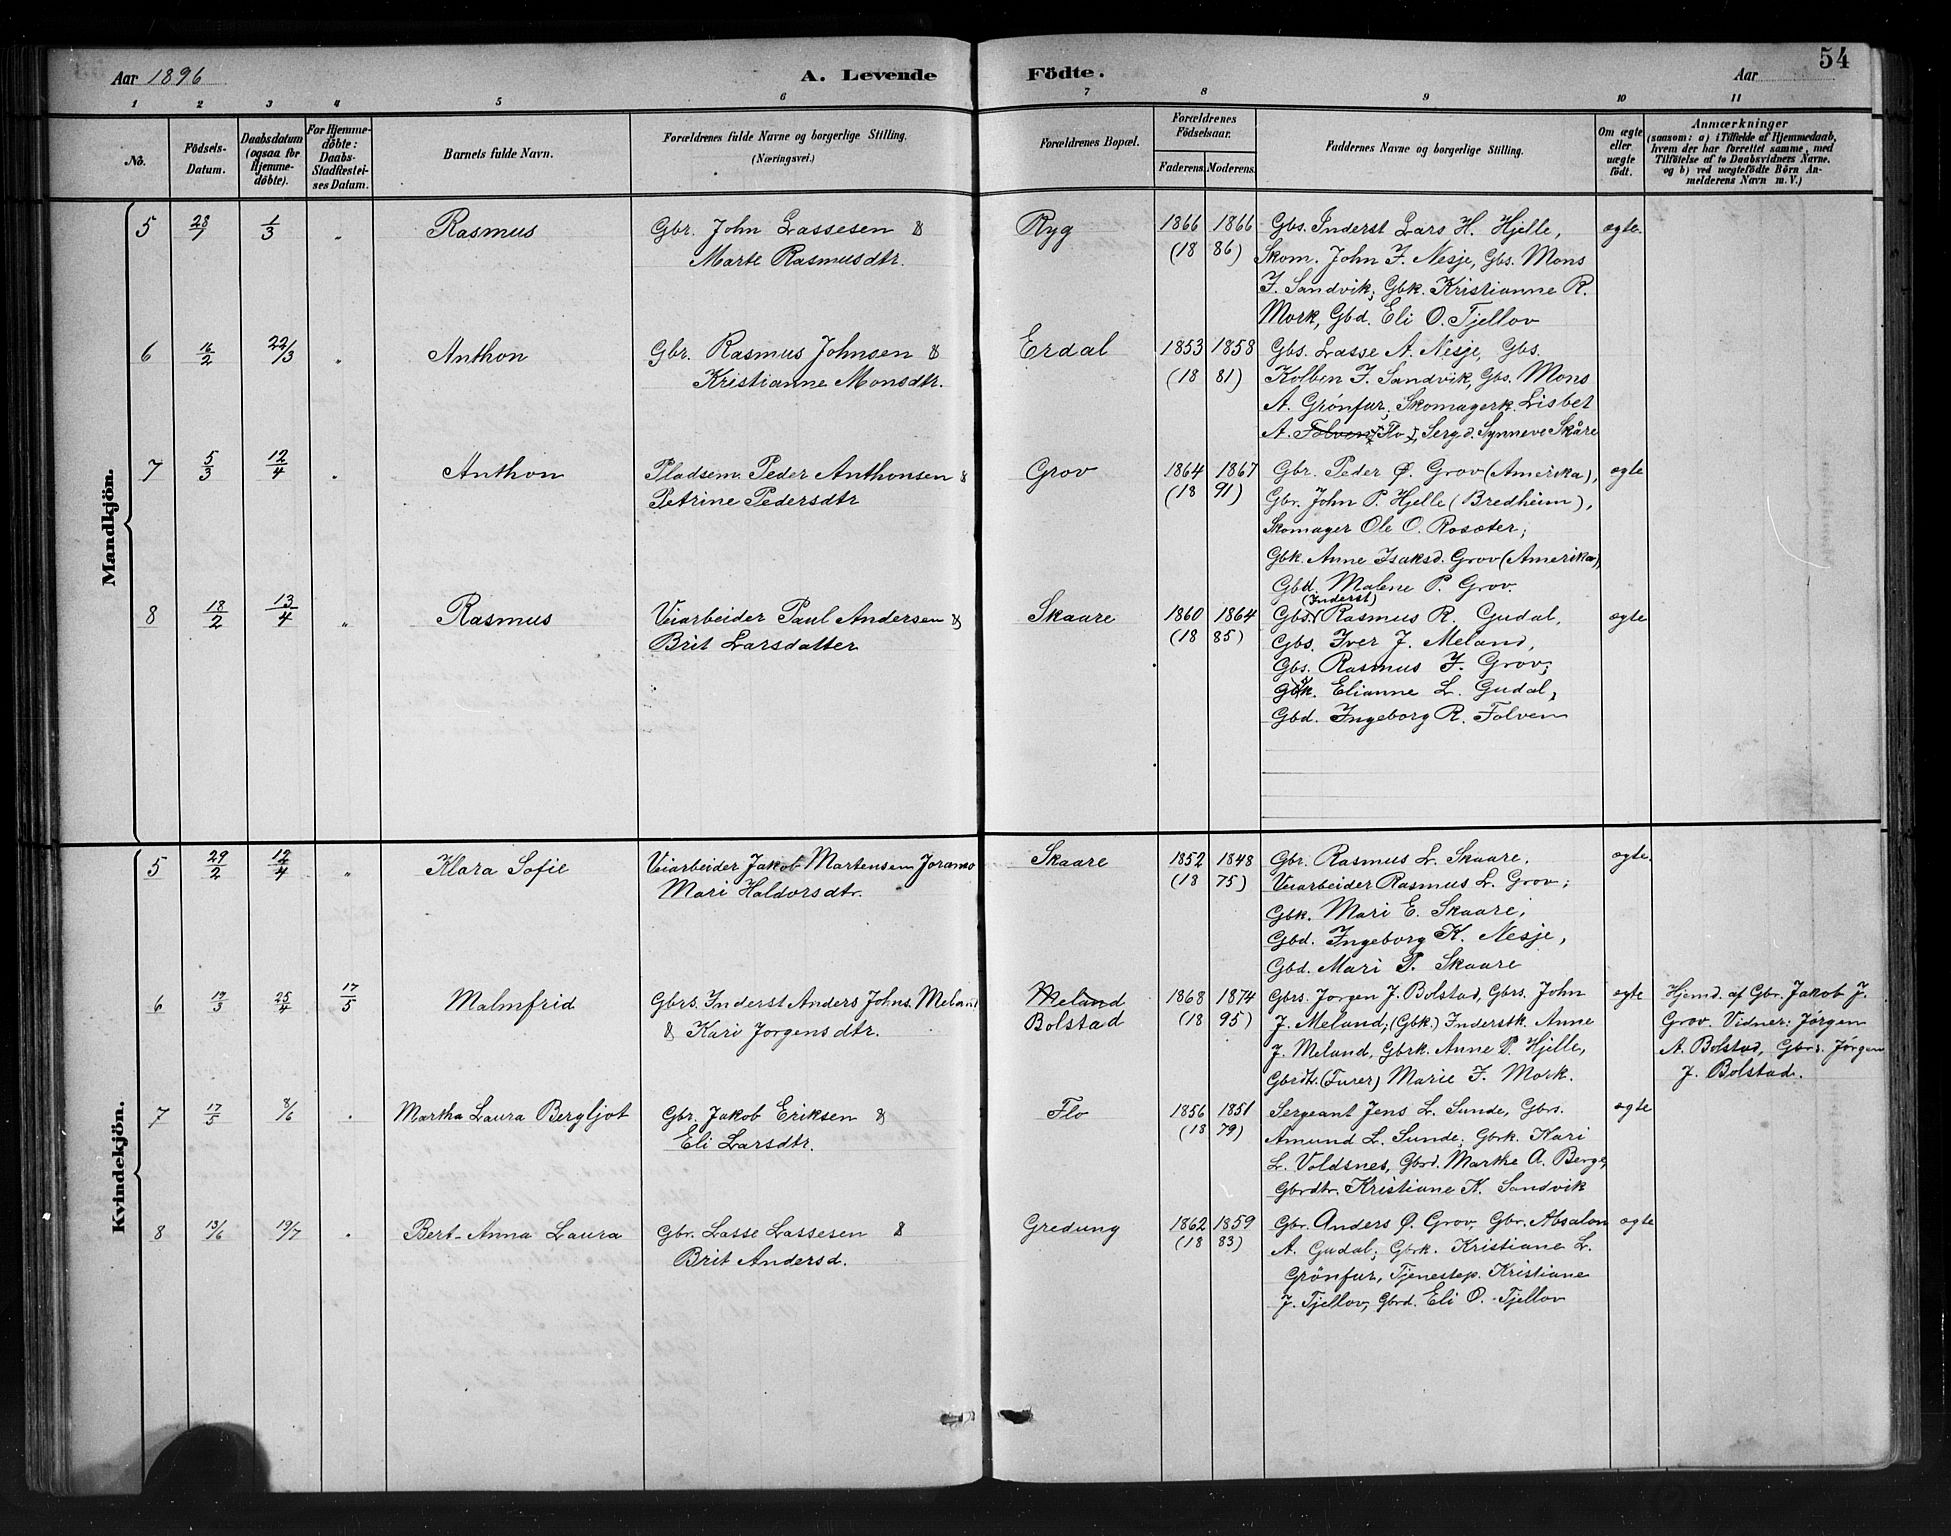 54
Aar 1896
A. Levende
Födte.
Aar
1 2 3 4 5 6 7 8 9 10 11
No.
Födsels-Datum.
Daabsdatum (ogsaa for Hjemme-döbte).
For Hjemme-döbte: Daabs-Stadfæstelses Datum.
Barnets fulde Navn.
Forældrenes fulde Navne og borgerlige Stilling.
(Næringsvei.)
Forældrenes Bopæl.
Forældrenes Födselsaar.
Faderens. Moderens.
Faddernes Navne og borgerlige Stilling.
Om ægte eller uægte födt.
Anmærkninger
(saasom: a) i Tilfælde af Hjemmedaab,
hvem der har forrettet samme, med
Tilföielse af to Daabsvidners Navne,
og b) ved uægtefödte Börn An-
melderens Navn m. V.)
Mandkjön.
5 28/1 1/3 " Rasmus
Gbr. John Lassesen &
Marte Rasmusdtr.
Ryg
1866 1866
(18 86)
Gbs. Inderst Lars H. Hjelle,
Skom. John J. Nesje, Gbs. Mons
J. Sandvik; Gbk. Kristianne R.
Mork, Gbd. Eli O. Tjellov
ægte.
6 16/2 22/3 " Anthon
Gbr. Rasmus Johnsen &
Kristianne Monsdtr.
Erdal
1853 1858
(18 81)
Gbs. Lasse A. Nesje, Gbs.
Kolben J. Sandvik, Gbs. Mons
A. Grönfur; Skomagerk. Lisbet
A. Folven Flo, Serg.d. Synneve Skåre
7 5/3 12/4 " Anthon
Pladsem. Peder Anthonsen &
Petrine Pedersdtr
Grov
1864 1867
(18 91)
Gbr. Peder Ø. Grov (Amerika),
Gbr. John P. Hjelle (Bredheim),
Skomager Ole O. Rosæter;
Gbk. Anne Isaksd. Grov (Amerika),
Gbd. Malene P. Grov.
ægte
8 18/2 13/4 " Rasmus
Veiarbeider Paul Andersen &
Brit Larsdatter
Skaare
1860 1864
(18 85)
(Inderst)
Gbs. Rasmus R. Gudal,
Gbs. Iver J. Meland,
Gbs. Rasmus J. Grov;
Gbk. Elianne L. Gudal,
Gbd. Ingeborg R. Folven
ægte
Kvindekjön.
5 29/2 12/4 " Klara Sofie
Veiarbeider Jakob Martensen Joramo
Mari Haldorsdtr.
Skaare
1852 1848
(18 75)
Gbr. Rasmus L. Skaare,
Veiarbeider Rasmus L. Grov;
Gbk. Mari E. Skaare,
Gbd. Ingeborg K. Nesje,
Gbd. Mari P. Skaare
ægte.
6 17/3 25/4 17/5 Malmfrid
Gbrs. Inderst Anders Johns. Meland
& Kari Jorgensdtr.
Meland
Bolstad
1868 1874
(18 95)
Gbrs. Jorgen J. Bolstad, Gbrs. John
J. Meland; (Gbk.) Inderstk. Anne
J. Meland, Gbrk. Anne P. Hjelle,
Gbrdtr. (Furer) Marie J. Mork.
ægte
Hjemd. af Gbr. Jakob J.
Grov. Vidner: Jørgen
A. Bolstad, Gbrs. Jørgen
J. Bolstad.
7 17/5 8/6 " Martha Laura Bergljot
Gbr. Jakob Eriksen &
Eli Larsdtr.
Flo
1856 1851
(18 79)
Sergeant Jens L. Sunde, Gbrs.
Amund L. Sunde; Gbrk. Kari
L. Voldsnes, Gbrd. Marthe A. Berge,
Gbrdtr. Kristiane K. Sandvik
ægte
8 13/6 19/7 " Bert-Anna Laura
Gbr. Lasse Lassesen &
Brit Andersd.
Gredung
1862 1859
(18 83)
Gbr. Anders Ø. Grov, Gbr. Absalon
A. Gudal; Gbrk. Kristiane L.
Grönfur, Tjenestep. Kristiane
J. Tjellov, Gbrd. Eli O. Tjellov
ægte